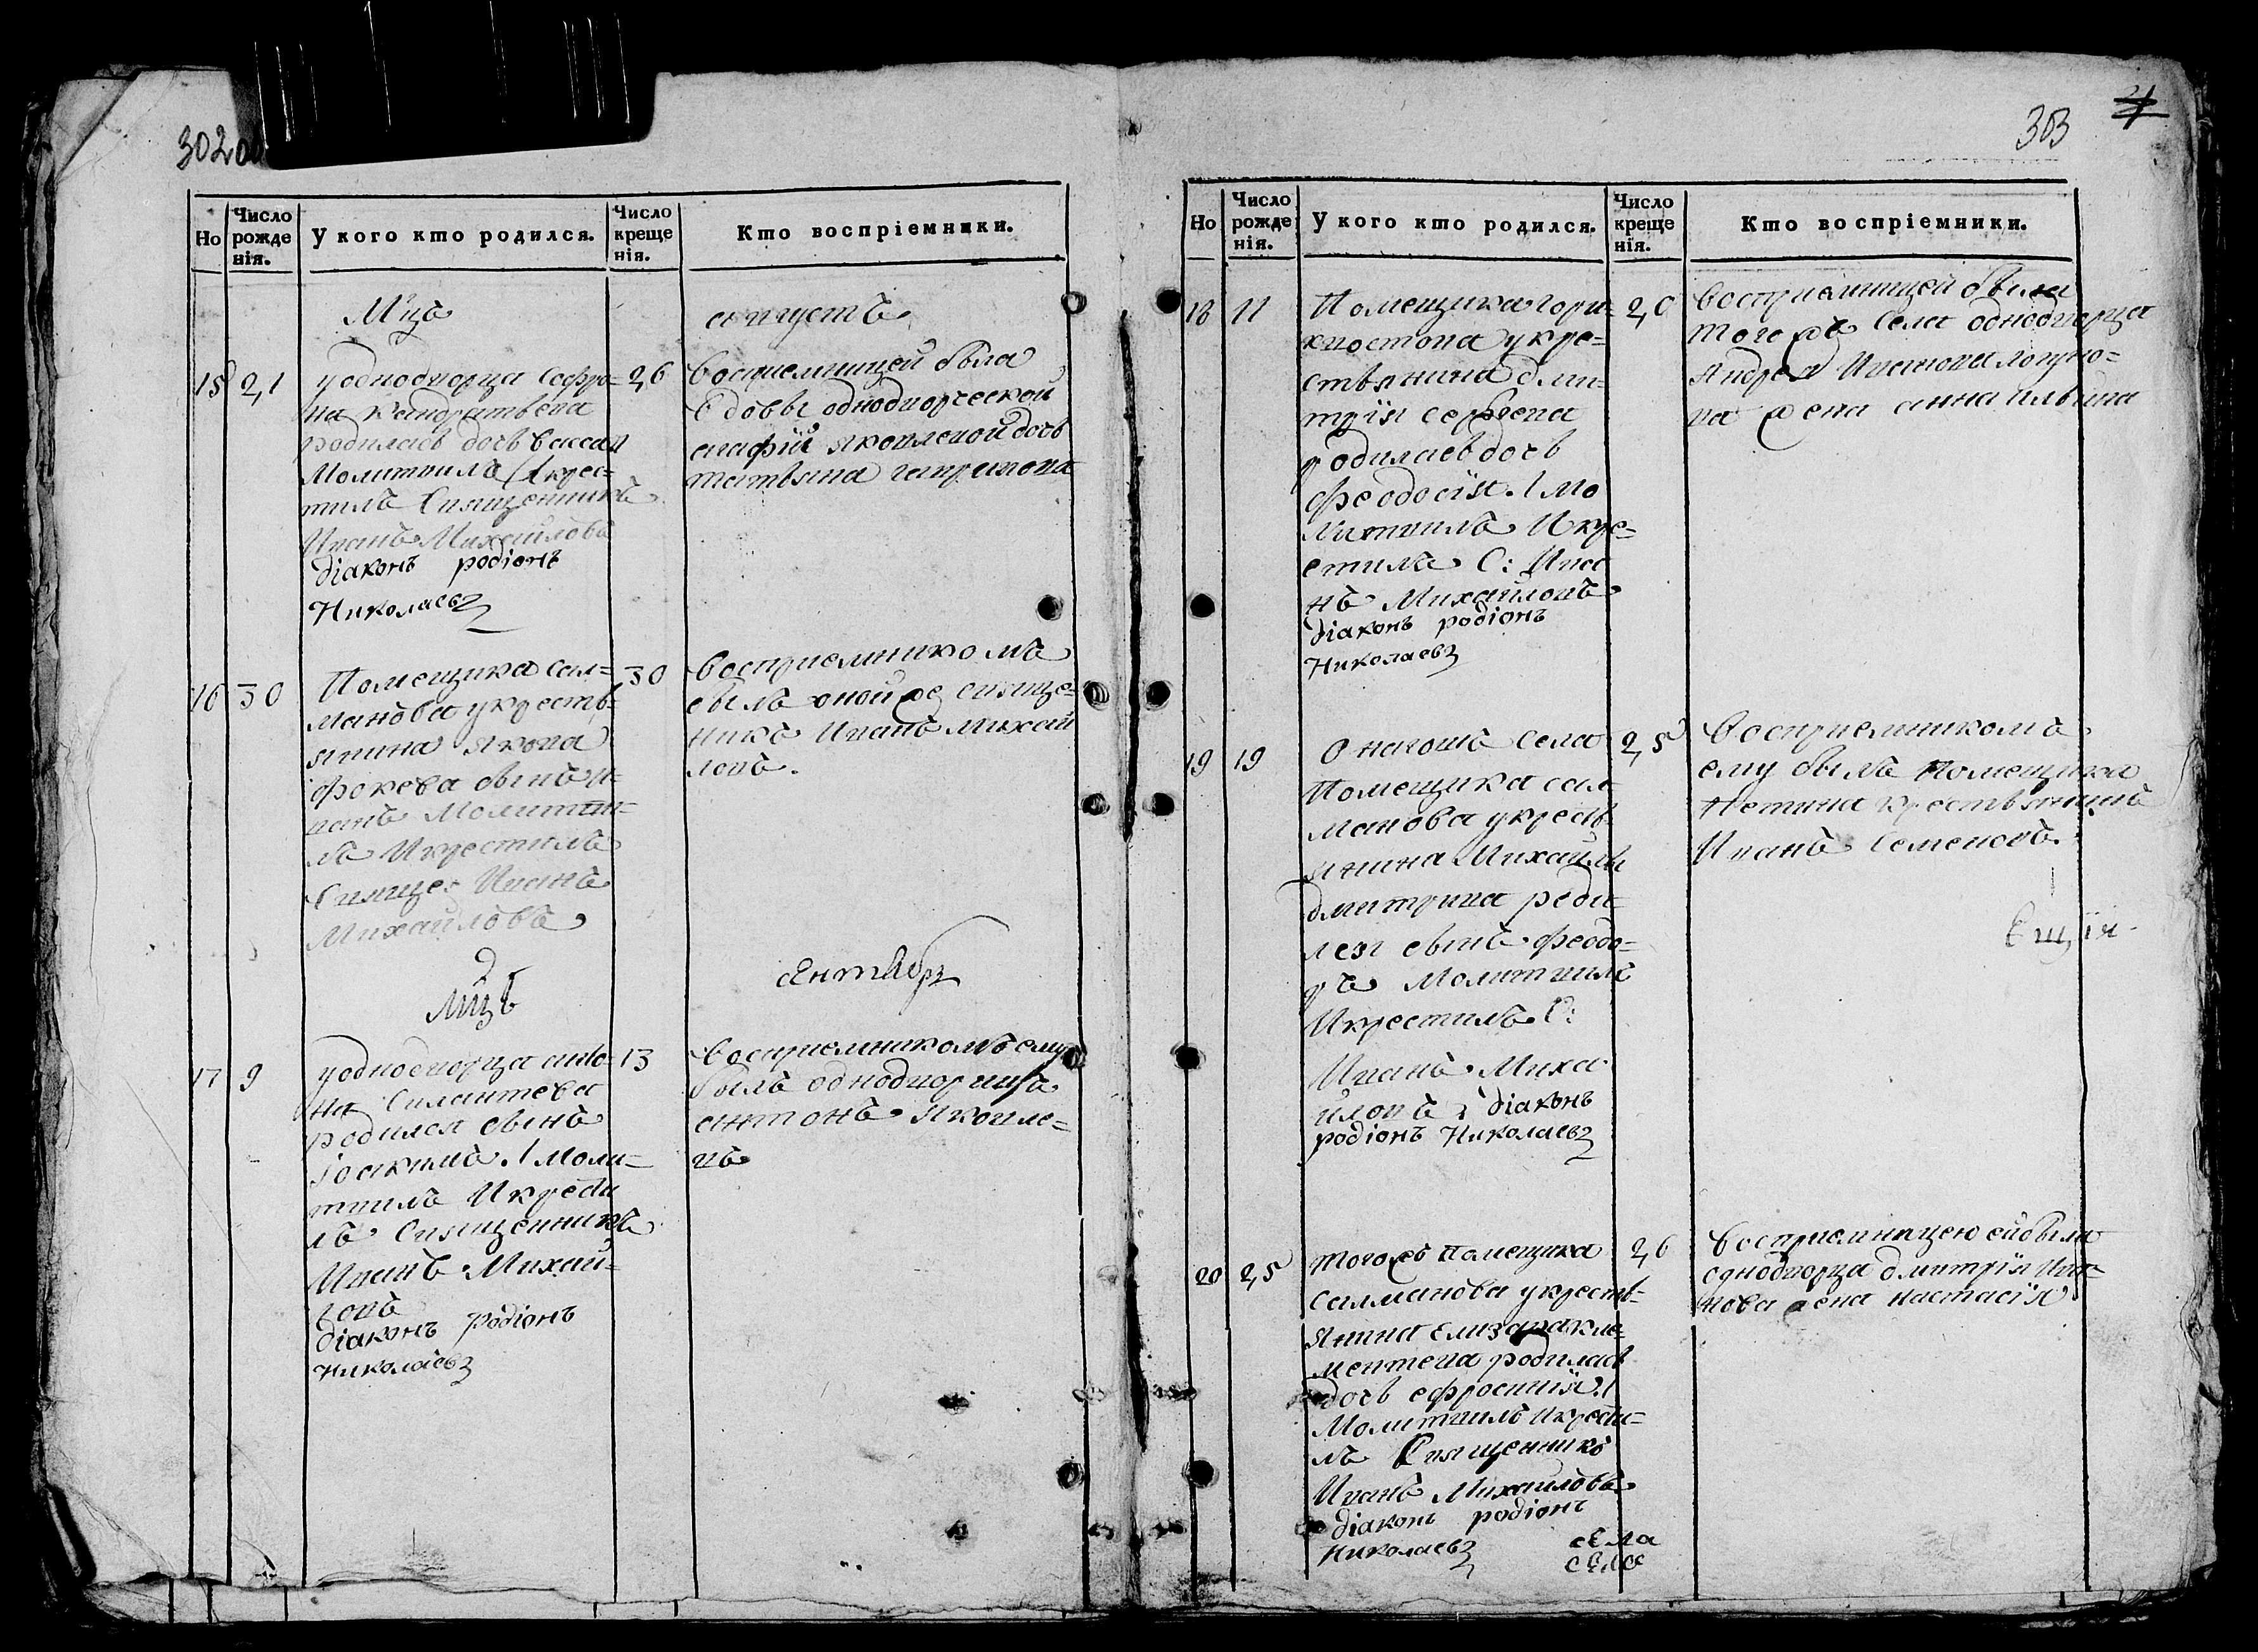 302
Но
Число рожденія.
У кого кто родился.
Число крещенія.
Кто воспріемники.
Мцъ августъ
15 21 26
у однодворца Софро-
на Кондратьева
родилась дочь Васса
Молитвилъ I крес-
тилъ Священникъ
Иванъ Михайловъ
діаконъ родіонъ
Николаевъ
Восприемницей была
вдовы однодворческой
агафіи яковлевой дочь
татьяна гаврилова
16 30 30
Помещика сал-
манова у кресть-
янина якова
фокева сынъ и-
ванъ Молитви-
лъ И крестилъ
Свяще: Иванъ
Михайловъ
Восприемникомъ
былъ оной же свяще-
никъ Иванъ Михай
ловъ.
Мцъ сентябрь
17 9 13
у однодворца анто-
на Силантева
родился сынъ
Iоакимъ. I моли-
твилъ И крести
лъ Священникъ
Иванъ Михай-
ловъ
діаконъ родіонъ
николаевъ
Восприемникомъ ему
былъ однодворецъ
антонъ яковле-
въ
303
Но
Число рожденія.
У кого кто родился.
Число крещенія.
Кто воспріемники.
18 11 20
Помещика гори-
у кре-
стьянина дми-
трія сергева
родилась дочь
феодосія. I мо
литвилъ И кре-
стилъ С: Ива
нъ Михайловъ
діаконъ родіонъ
Николаевъ
Восприемницей была
того жъ Села однодворца
Андрея
жена анна
19 19 25
Села
Помещика сал
манова у кресть
янина Михайлы
дмитрива роди
лся сынъ феодо-
ръ Молитвилъ
И крестилъ С:
Иванъ Миха
йловъ діаконъ
родіонъ Николаевъ
Восприемникомъ
ему былъ помещика
крестьянинъ
Иванъ Семеновъ.
20 25 26
Того жъ помещика
Салманова у кресть-
янина Елизара кле-
ментева родилась
дочь ефросинія. I
Молитвилъ И крести-
лъ Священникъ
Иванъ Михайловъ
діаконъ родіонъ
Николаевъ
села
селе
Восприемницею ей была
однодворца дмитрія Ива-
нова жена настасія